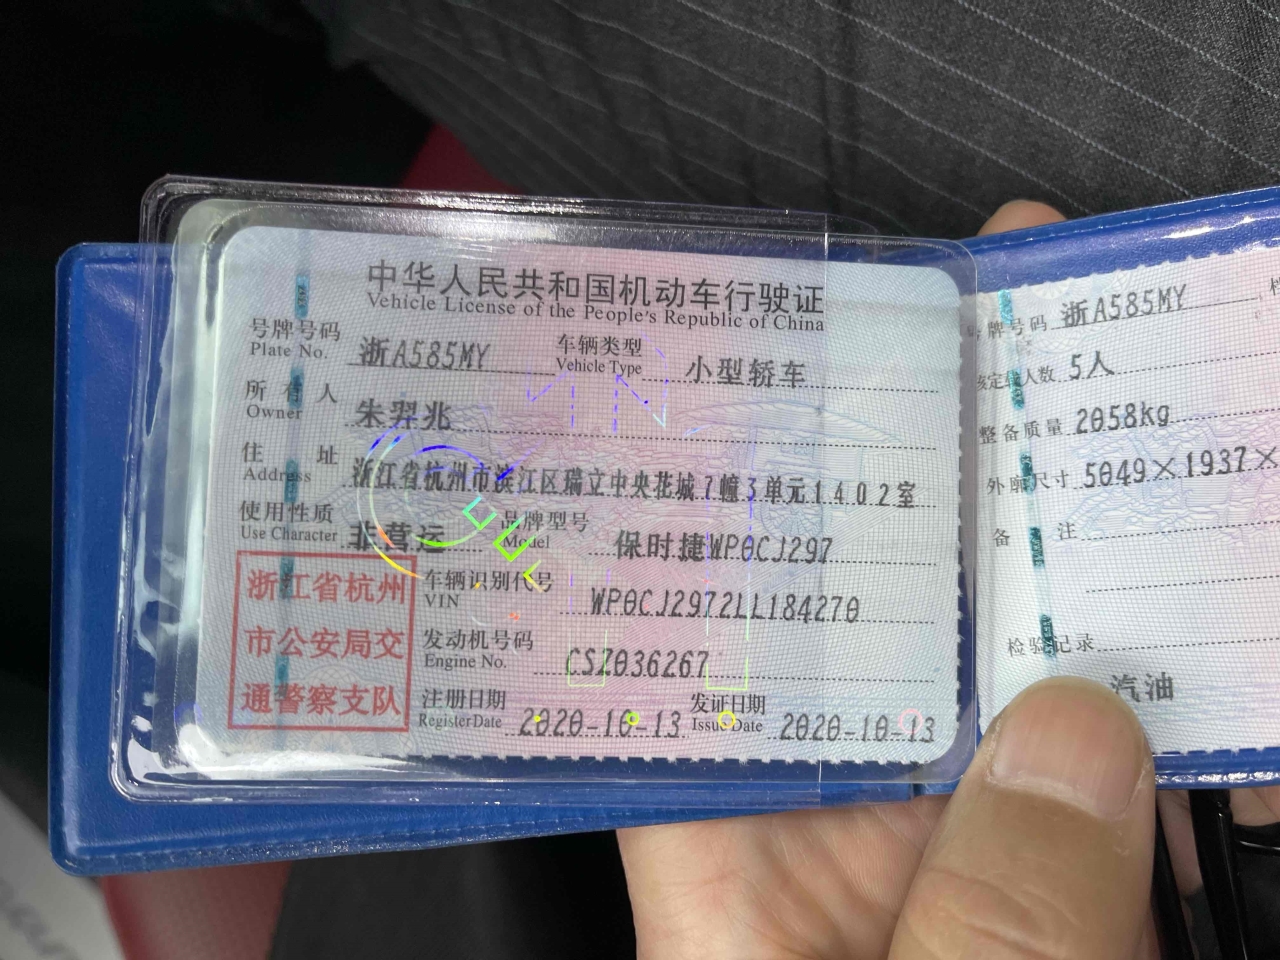 中华人民共和国机动车行驶证
Vehicle License of the People's Republic of China
号牌号码 浙A585MY 车辆类型 小型轿车
Plate No. Vehicle Type
所有人 朱羿兆
Owner
住址 浙江省杭州市滨江区瑞立中央花城7幢3单元1402室
Address
使用性质 非营运 品牌型号 保时捷WP0CJ297
Use Character Model
浙江省杭州
市公安局交
通警察支队
车辆识别代号 WP0CJ2972LL184270
VIN
发动机号码 CSZ036267
Engine No.
注册日期 2020-10-13 发证日期 2020-10-13
Register Date Issue Date
号牌号码 浙A585MY
核定载人数 5人
整备质量 2058kg
外廓尺寸 5049×1937×
备注
检验记录
汽油